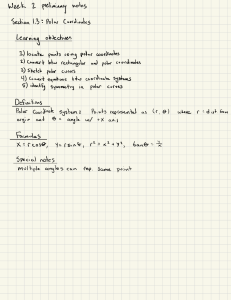 Week 2 preliminary notes
Section 1.3: Polar Coordinates
Learning objectives
1) locate points using polar coordinates
2) Convert btw rectangular and polar coordinates
3) Sketch polar curves
4) Convert equations btw coordinate systems
5) identify symmetry in polar curves
Definitions
Polar Coordinate System: Points represented as (r, θ) where r = dist from
origin and θ = angle w/ +x axis
Formulas
x = r cosθ, y = r sinθ, r² = x² + y², tanθ = y/x
Special notes
multiple angles can rep. same point